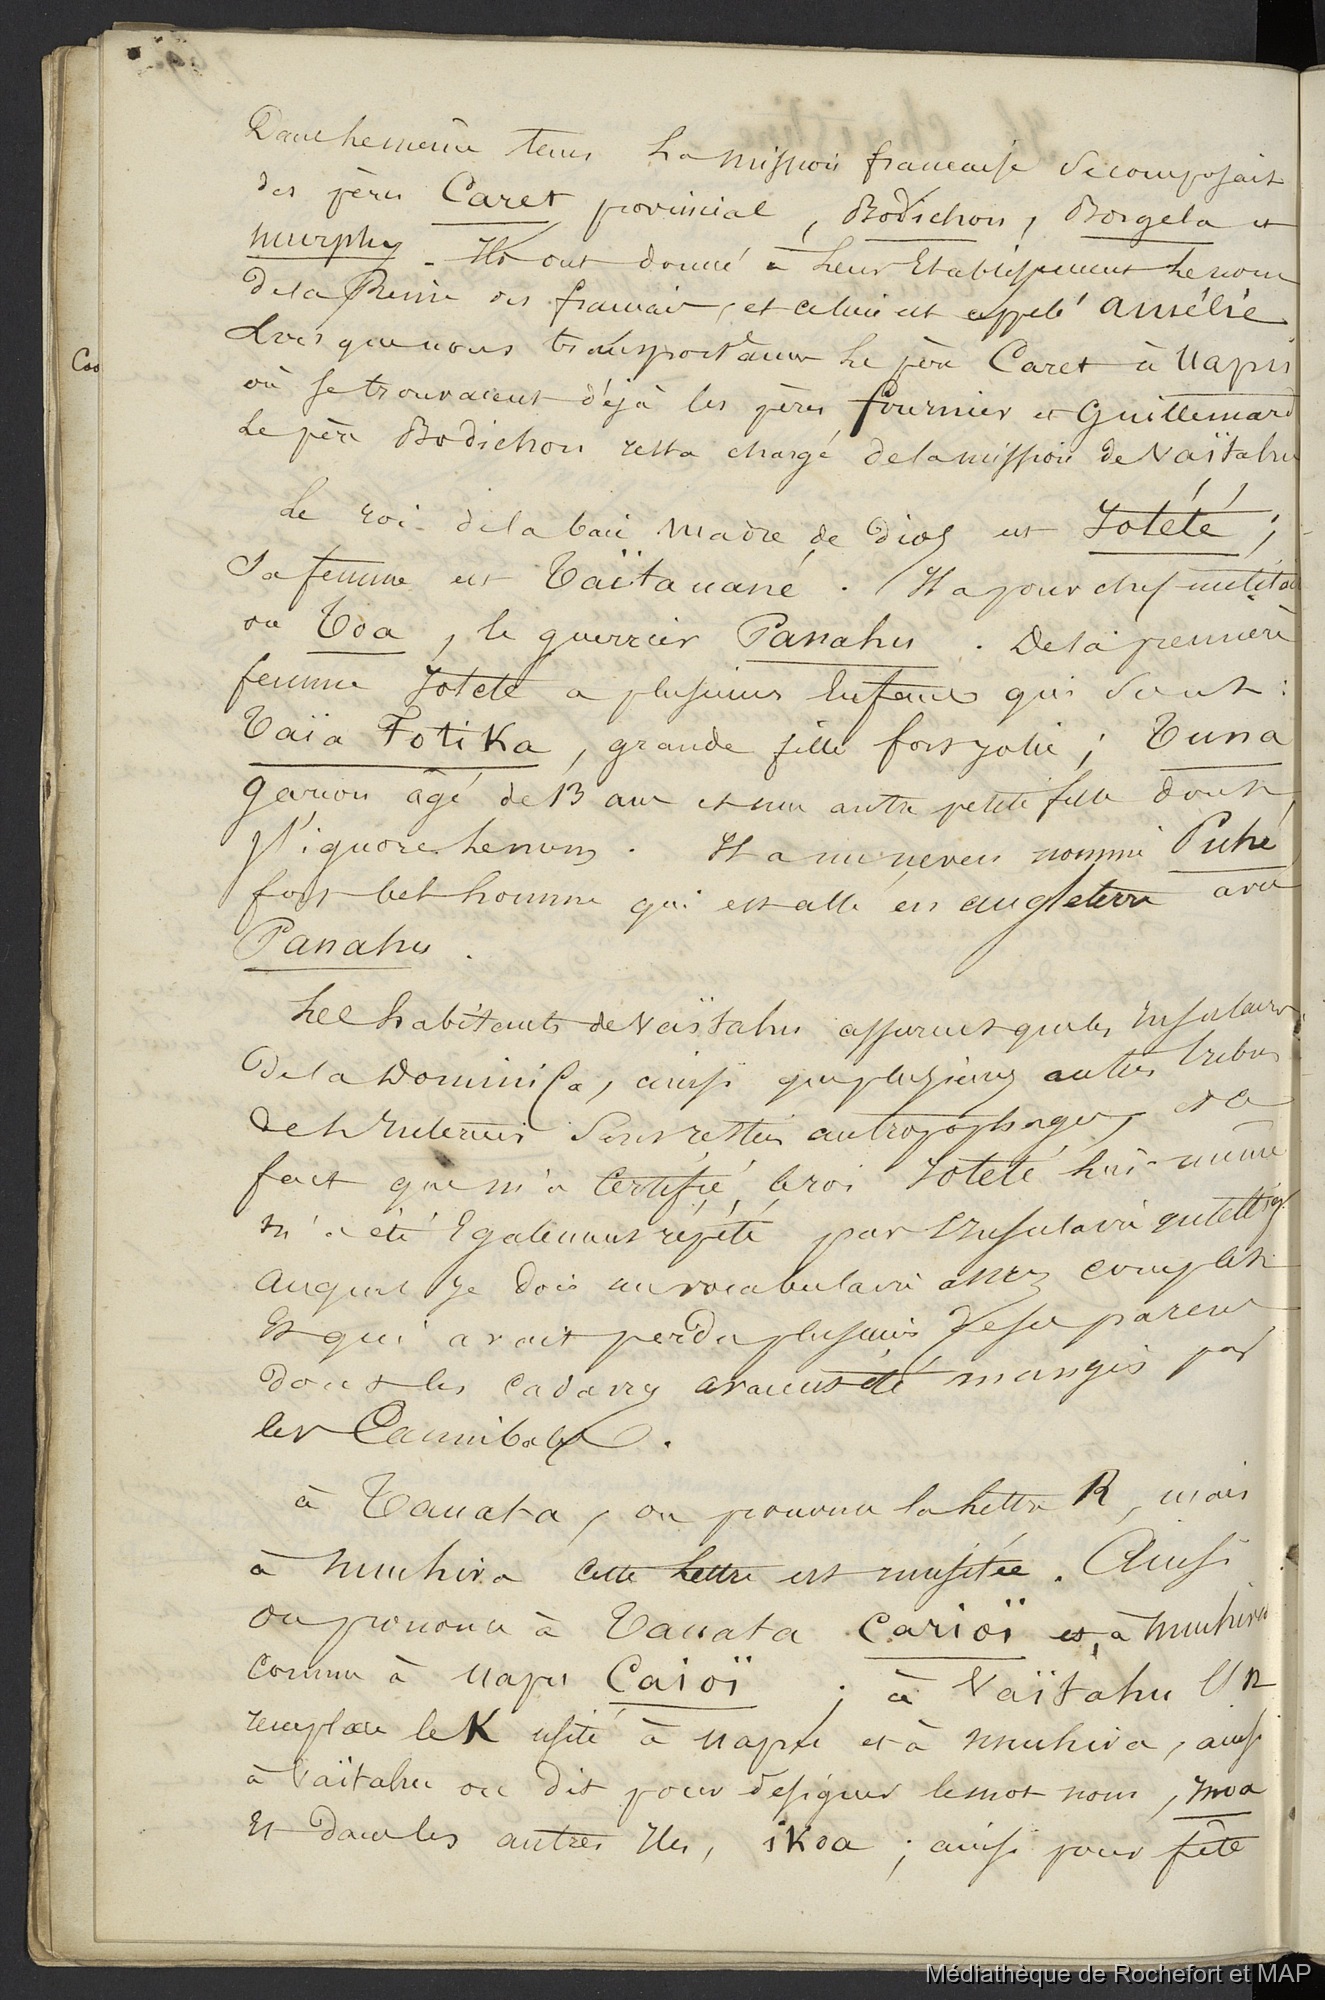 Dans le même tems la mission française se composait
des pères Caret provincial, Bodichon, Borgela et
murphy. Ils ont donné à leur Etablissement le nom
de la Reine des français, et celui est appelé amélie
Lorsque nous transportames le père Caret à Uapu
où se trouvaient déjà les pères fournier et Guillemard
Le père Bodichon resta chargé de la mission de Vaïtahu
Le roi de la baie Madre de Dios est Iotété;
Sa femme est Taïtauané. Il a pour chef militaire
ou Toa, le guerrier Panahu. De la première
femme Iotété a plusieurs Enfans qui sont:
Taïa Totika, grande fille fort jolie; Tuna
garçon âgé de 13 ans et une autre petite fille dont
j'ignore le nom. Il a un neveu nommé Puhé
fort bel homme qui est allé en angleterre avec
Panahu.
Les habitants de Vaïtahu assurent que les Insulaires
De la Dominica, ainsi que plusieurs autres tribus
de l'Intérieur sont restés antropophages, et ce
fait que m'a certifié le roi Iotété lui-même
m'a été Egalement répété par l'Insulaire
auquel je dois un vocabulaire assez complet
Et qui avait perdu plusieurs de ses parens
dont les cadavres avaient été mangés par
les Cannibales.
à Tauata, on prononce la lettre R, mais
à nuuhiva cette lettre est inusitée. Ainsi
on prononce à Tauata Carioï et à Nuuhiva
comme à Uapu Caioï; à Vaïtahu l'N
remplace le K usité à Uapu et à nuuhiva, ainsi
à Vaïtahu on dit pour désigner le mot nom, inoa
Et dans les autres Iles, iKoa; ainsi pour fête
Coo
Médiathèque de Rochefort et MAP